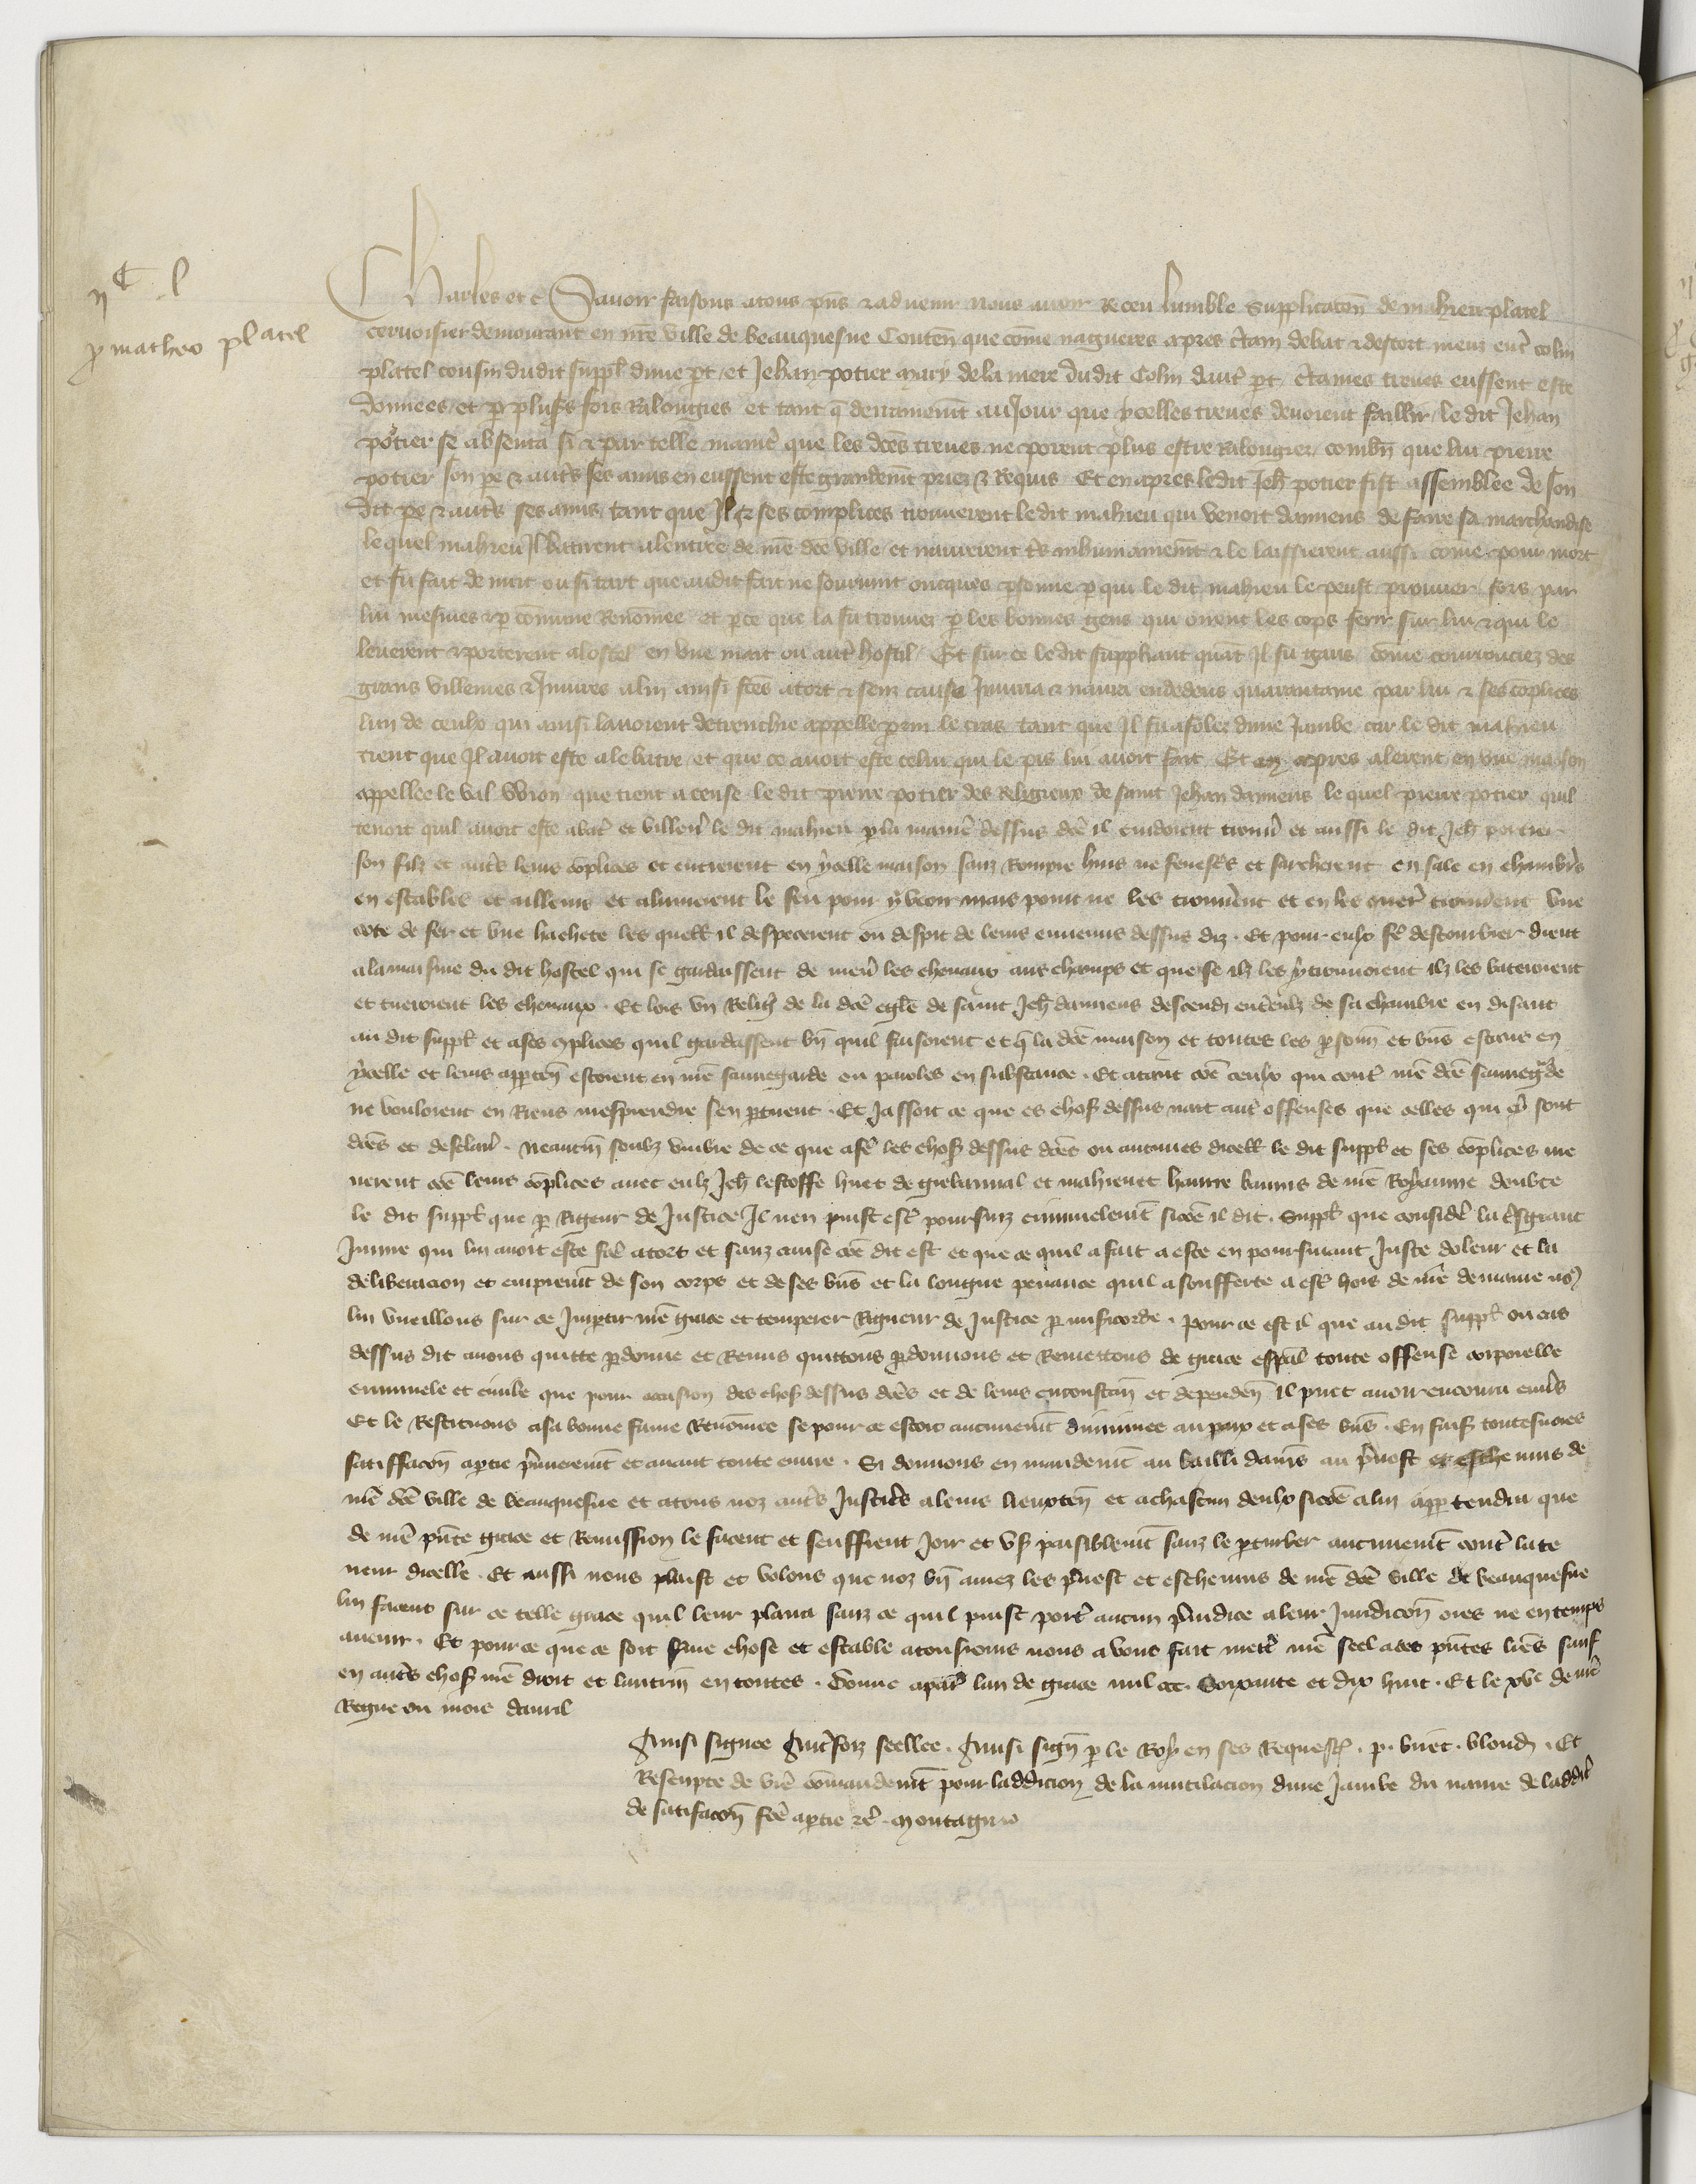 IIC L
p matheo platel
Charles etc Savoir faisons atous pñs & advenir nous avoir Receu lumble Supplicacõn de mahieu platel
cervoisier demourant en nr̃e ville de beauquesne Conten̄ que cõme nagueres apres c̃tain debat & descort meuz entr̃ colin
platel cousin dudit suppl̃ dune p̱t et Jehan potier mary de la mere dudit Colin dautr̃ p̱t c̃taines treues eussent este
donnees et p̱ plusẽs fois Ralongies et tant q̃ derrainem̃t au Jour que ycelles treues devoient faillir le dit Jehan
potier se absenta si & par telle manier̃ que les dc̃es treues ne porent plus estre Ralongier combñ que lui pierre
potier son pe & autr̃s ses amis en eussent este grandem̃t priez & Requis Et en apres ledit Jeh̃ potier fist assemblee de son
dit pe & autr̃s ses amis tant que Il & ses complices trouverent le dit mahieu qui venoit damiens de faire sa marchandise
le quel mahieu Il batirent alentree de nr̃e dc̃e ville et navrerent tr̃s inhumainem̃t & le laissierent aussi cõme pour mort
et fu fait de nuit ou si tart que audit fait ne sourvint oncques p̱sonne p̱ qui le dit mahieu le peust prouver fors par
lui mesmes & p̱ cõmune Renõmee et p̱ce que la fu trouvez p̱ les bonnes gens qui oirent les cops ferir sur lui & qui le
leverent & porterent a lostel en une mait ou autr̃ hostil Et sur ce le dit suppliant quãt Il fu garis cõme courrouciez des
grans villenies & Jniures alui ainsi fc̃es atort & senz cause Jniuria & navra endedens quarantaine par lui & ses cõplices
lun de ceulx qui ainsi lavoient detrenchie appelle p̱rin le cras tant que Il fu afolez dune Jambe car le dit mahieu
tient que Il avoit este ale batre et que ce avoit este celui qui le pis lui avoit fait Et en apres alerent en une maison
appellee le val Wion que tient a cense le dit pierre potier des Religieux de saint Jehan damiens le quel pierre potier quil
tenoit quil avoit este abatr̃ et villen̄ le dit mahieu p̱ la manier̃ dessus dc̃e il cuidoient trouũ et aussi le dit Jeh̃ potier
son filz et autr̃s leurs cõplices et entrerent en ycelle maison sanz Rompre huis ne fenestr̃s et sercherent en sale en chambr̃s
en estables et ailleurs et alumerent le feu pour y veoir mais point ne les trouver̃ent et en les querr̃ trouver̃ent une
cote de fer et une hachete les quelx̃ il despecerent ou despit de leurs ennemis dessus diz . Et pour eulx fer̃ destourbier dirent
a la maisnie du dit hostel qui se gardassent de mener̃ les chevaux aus champs et que se ilz les y trouvoient ilz les bateroient
et tueroient les chevaux . Et lors un Relig̃ de la dc̃e eglĩse de saint Jeh̃ damiens descendi entr̃eulz de sa chambre en disant
au dit suppl̃ et ases 9plices quil gardassent bñ quil faisoient et q̃ la dc̃e maison et toutes les p̱sonñ et biẽs estans en
ycelle et leurs app̱ten̄ estoient en nr̃e sauvegarde en paroles en substance . Et atant cõe ceulx qui contr̃ nr̃e dc̃e sauvegarde
ne vouloient en Riens mesprendre sen p̱tirent . Et Jassoit ce que es choses dessus nait autr̃ offenses que celles qui cy sont
dc̃es et desclair̃ . Neantm̃ soulz umbre de ce que afer̃ les choses dessus dc̃es ou aucunes dicelles le dit suppl̃ et ses cõplices me
nerent cõe leurs cõplices avec eulz Jeh̃ lestoffe huet de gielainval et mahieuet havare bannis de nr̃e Royaume doubte
le dit suppl̃ que p̱ Rigeur de Justice Il nen puist estr̃ poursuiz criminelem̃t sicõe il dit . Suppl̃ que consider̃ la tr̃sgrant
Jniure qui lui avoit este fc̃e atort et sanz cause cõe dit est et que ce quil a fait a este en poursuiant Juste doleur et la
deliberacion et emprem̃t de son corps et de ses biẽs et la longue penance quil a soufferte a estr̃ hors de nr̃e demaine nos̃
lui vueillons sur ce Jmp̱tir nr̃e grace et temperer Rigueur de Justice p̱ mis̃icorde . pour ce est il que au dit suppl̃ ou cas
dessus dit avons quitte p̱donne et Remis quittons p̱donnons et Remettons de grace esp̱al toute offense corporelle
criminele et civile que pour occasion des choses dessus dc̃es et de leurs circonstan̄ et dependen̄ il puet avoir encouru envr̃s
Et le Restituons asa bonne fame Renõmee se pour ce estoit aucunem̃t diminuee au pays et a ses biẽs . En fais̃ toutesvoies
satiffacõn ap̱tie p̱mierem̃t et avant toute euvre . Si donnons en mandem̃t au bailli damĩes au p̱vost et eschevins de
nr̃e dc̃e ville de beauquesne et atous noz autr̃s Justicĩes aleurs lieuxten̄ et achascun deulx sicõe alui app̱tendra que
de nr̃e p̱nte grace et Remission le facent et seuffrent Joir et us̃ paisiblem̃t sanz le p̱turber aucunem̃t contr̃ la te
neur dicelle . Et aussi nous plaist et volons que noz bñ amez les p̱vost et eschevins de nr̃e dc̃e ville de beauquesne
lui facent sur ce telle grace quil leur plaira sanz ce quil puist porter̃ aucun p̱iudice aleur Juridicõn ores ne en temps
avenir . Et pour ce que ce soit ferme chose et estable atousiours nous avons fait metr̃ nr̃e seel aces p̱ntes lr̃es sauf
en autr̃s choses nr̃e droit et lautrui en toutes . Donne aparis̃ lan de grace mil ccc . Soixante et dix huit . Et le xve de nr̃e
Regne ou mois davril
Ainsi signee Autr̃foiz seellee . Ainsi sign̄ p̱ le Roy en ses Requestes . p . buet . blond̃ . Et
Rescripte de vr̃e cõmandem̃t pour laddicion de la mutilacion dune Jambe du navre de laddic̃
de satifacõn fc̃e ap̱tie &c̃ . Montagu